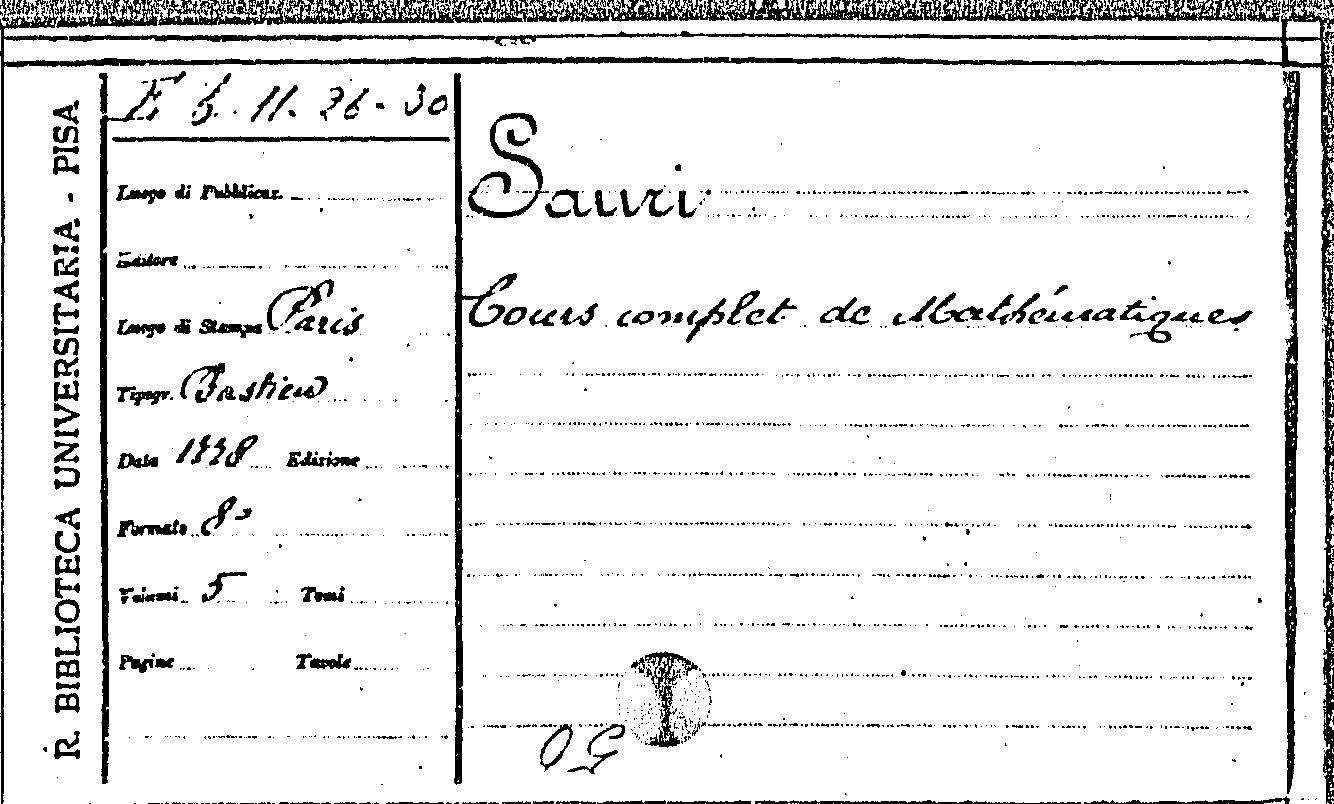 R. BIBLIOTECA UNIVERSITARIA - PISA
E b. 11. 26-30
Luogo di Pubblicaz.
Editore
Luogo di Stampa Paris
Tipogr. Bastien
Data 1778 Edizione
Formato 8º
Volumi 5 Tomi
Pagine Tavole
Sauri
Cours complet de Mathématiques